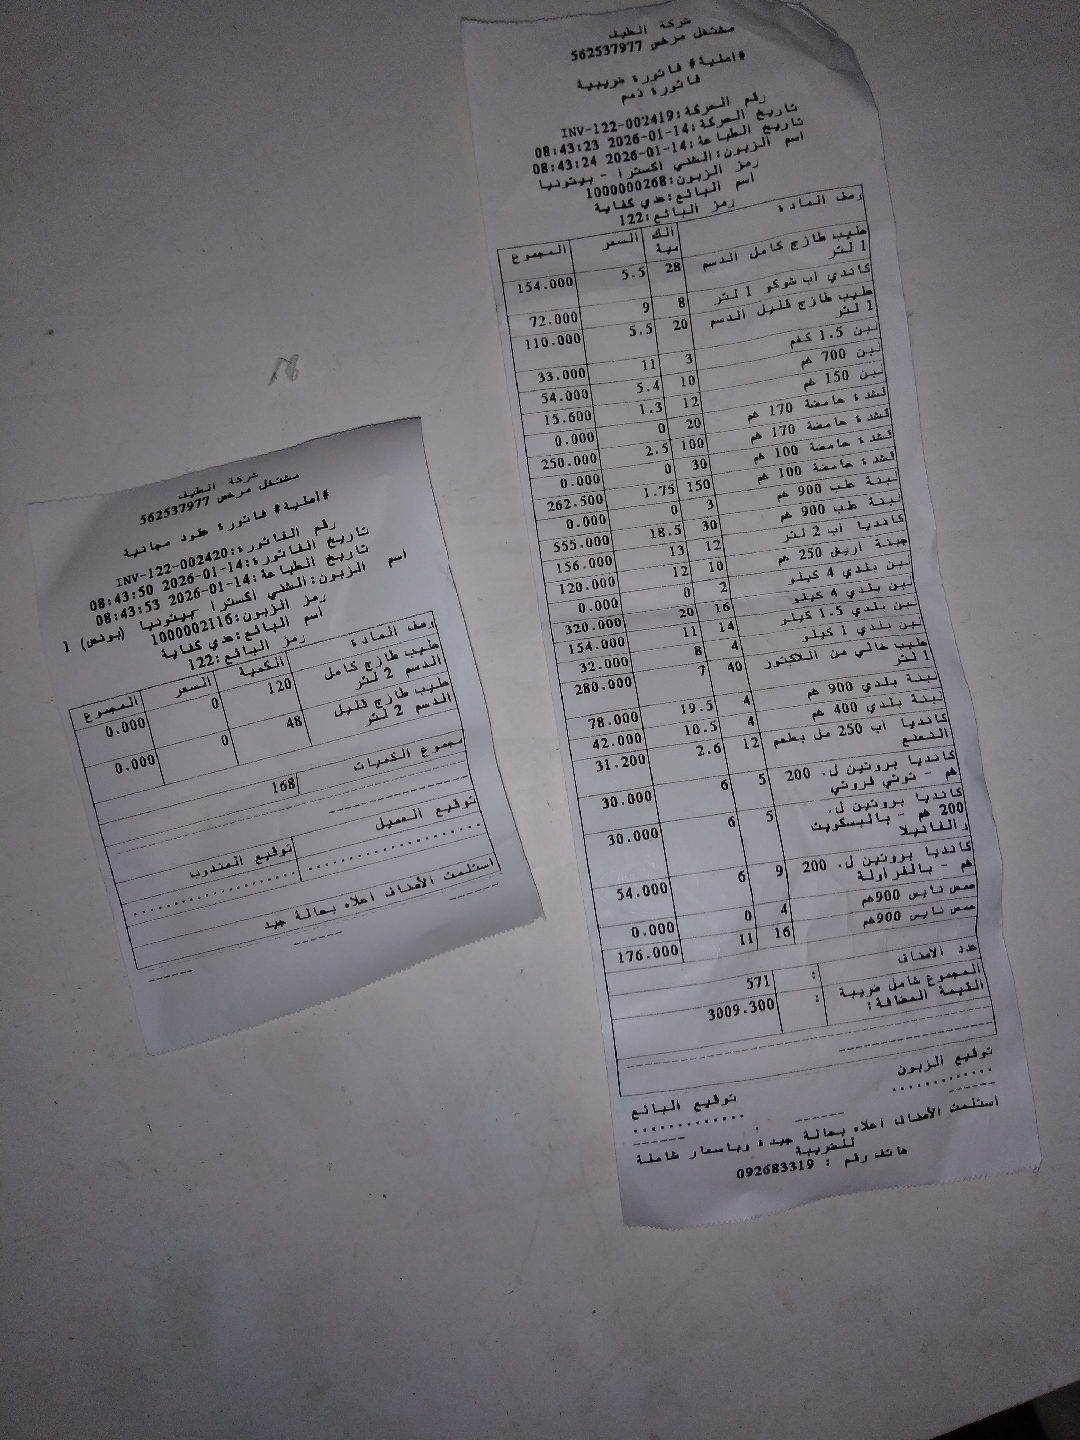 شركة الطيف
مشتغل مرخص 562537977
#أصلية# فاتورة ضريبية
فاتورة ذمم
رقم الحركة:INV-122-002419
تاريخ الحركة:14-01-2026 08:43:23
تاريخ الطباعة:14-01-2026 08:43:24
اسم الزبون:الشني اكسترا - بيتونيا
رمز الزبون:1000000268
اسم البائع:عدي كفاية
رمز البائع:122
وصف المادة الكمية السعر المجموع
حليب طازج كامل الدسم 1 لتر 28 5.5 154.000
كاندي اب شوكو 1 لتر 8 9 72.000
حليب طازج قليل الدسم 1 لتر 20 5.5 110.000
لبن 1.5 كغم 3 11 33.000
لبن 700 غم 10 5.4 54.000
لبن 150 غم 12 1.3 15.600
قشدة حامضة 170 غم 20 0 0.000
قشدة حامضة 170 غم 100 2.5 250.000
قشدة حامضة 100 غم 30 0 0.000
قشدة حامضة 100 غم 150 1.75 262.500
لبنة علب 900 غم 3 0 0.000
لبنة علب 900 غم 30 18.5 555.000
كانديا اب 2 لتر 12 13 156.000
جبنة اريش 250 غم 10 12 120.000
لبن بلدي 4 كيلو 2 0 0.000
لبن بلدي 4 كيلو 16 20 320.000
لبن بلدي 1.5 كيلو 14 11 154.000
لبن بلدي 1 كيلو 4 8 32.000
حليب خالي من اللاكتوز 1 لتر 40 7 280.000
لبنة بلدي 900 غم 4 19.5 78.000
لبنة بلدي 400 غم 4 10.5 42.000
كانديا اب 250 مل بطعم النعنع 12 2.6 31.200
كانديا بروتين ل. 200 غم - توتي فروتي 5 6 30.000
كانديا بروتين ل. 200 غم - بالبسكويت والفانيلا 5 6 30.000
كانديا بروتين ل. 200 غم - بالفراولة 9 6 54.000
حمص نايس 900غم 4 0 0.000
حمص نايس 900غم 16 11 176.000
عدد الأصناف : 571
المجموع شامل ضريبة القيمة المضافة: : 3009.300
توقيع الزبون توقيع البائع
استلمت الأصناف اعلاه بحالة جيدة وباسعار شاملة للضريبة
هاتف رقم : 092683319
شركة الطيف
مشتغل مرخص 562537977
#أصلية# فاتورة عقود مجانية
رقم الفاتورة:INV-122-002420
تاريخ الفاتورة:14-01-2026 08:43:50
تاريخ الطباعة:14-01-2026 08:43:53
اسم الزبون:الشني اكسترا -بيتونيا (بونص) 1
رمز الزبون:1000002116
اسم البائع:عدي كفاية
رمز البائع:122
وصف المادة الكمية السعر المجموع
حليب طازج كامل الدسم 2 لتر 120 0 0.000
حليب طازج قليل الدسم 2 لتر 48 0 0.000
مجموع الكميات 168
توقيع العميل توقيع المندوب
استلمت الأصناف اعلاه بحالة جيد